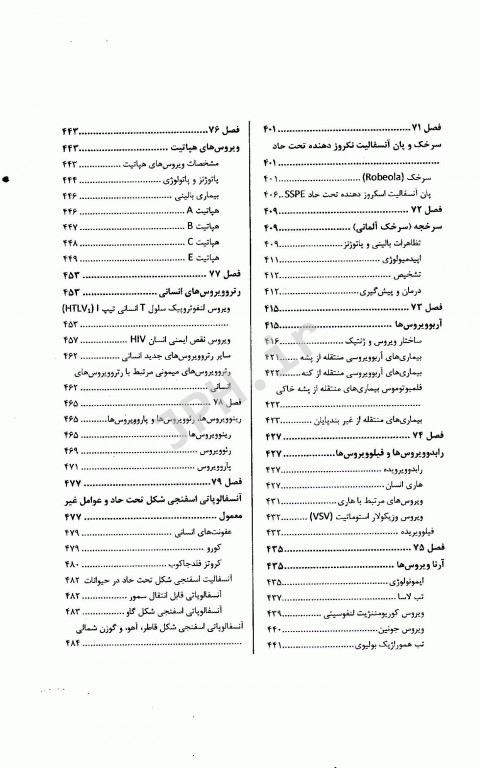 فصل ۷۱..............................۴۰۱
سرخک و پان آنسفالیت نکروز دهنده تحت حاد
..............................۴۰۱
سرخک (Robeola)..............................۴۰۱
پان آنسفالیت اسکروز دهنده تحت حاد SSPE..۴۰۶
فصل ۷۲..............................۴۰۹
سرخجه (سرخک آلمانی)..............................۴۰۹
تظاهرات بالینی و پاتوژنز..............................۴۰۹
اپیدمیولوژی..............................۴۱۱
تشخیص..............................۴۱۲
درمان و پیش‌گیری..............................۴۱۲
فصل ۷۳..............................۴۱۵
آربوویروس‌ها..............................۴۱۵
ساختار ویروس و ژنتیک..............................۴۱۶
بیماری‌های آربوویروسی منتقله از پشه..........۴۲۱
بیماری‌های آربوویروسی منتقله از کنه..........۴۲۲
فلمبوتوموس بیماری‌های منتقله از پشه خاکی
..............................۴۲۲
بیماری‌های منتقله از غیر بندپایان..........۴۲۳
فصل ۷۴..............................۴۲۷
رابدوویروس‌ها و فیلوویروس‌ها..........۴۲۷
رابدوویرویده..............................۴۲۷
هاری انسان..............................۴۲۷
ویروس‌های مرتبط با هاری..............................۴۳۱
ویروس وزیکولار استوماتیت (VSV)..........۴۳۲
فیلوویریده..............................۴۳۲
فصل ۷۵..............................۴۳۵
آرنا ویروس‌ها..............................۴۳۵
ایمونولوژی..............................۴۳۵
تب لاسا..............................۴۳۷
ویروس کوریومننژیت لنفوسیتی..........۴۳۹
ویروس جونین..............................۴۴۰
تب هموراژیک بولیوی..............................۴۴۱
فصل ۷۶..............................۴۴۳
ویروس‌های هپاتیت..............................۴۴۳
مشخصات ویروس‌های هپاتیت..........۴۴۳
پاتوژنز و پاتولوژی..............................۴۴۴
بیماری بالینی..............................۴۴۶
هپاتیت A..............................۴۴۶
هپاتیت B..............................۴۴۷
هپاتیت C..............................۴۴۸
هپاتیت E..............................۴۴۹
فصل ۷۷..............................۴۵۳
رتروویروس‌های انسانی..............................۴۵۳
ویروس لنفوتروپیک سلول T انسانی تیپ I (HTLV₁)
..............................۴۵۳
ویروس نقص ایمنی انسان HIV..........۴۵۷
سایر رتروویروس‌های جدید انسانی..........۴۶۲
رتروویروس‌های میمونی مرتبط با رتروویروس‌های
انسانی..............................۴۶۲
فصل ۷۸..............................۴۶۵
رینوویروس‌ها، رئوویروس‌ها و پاروویروس‌ها..........۴۶۵
رینوویروس‌ها..............................۴۶۵
رئوویروس..............................۴۶۹
پاروویروس..............................۴۷۱
فصل ۷۹..............................۴۷۷
آنسفالوپاتی اسفنجی شکل تحت حاد و عوامل غیر
معمول..............................۴۷۷
عفونت‌های انسانی..............................۴۷۹
کورو..............................۴۷۹
کروتز فلدجاکوب..............................۴۸۰
آنسفالیت اسفنجی شکل تحت حاد در حیوانات ۴۸۲
آنسفالوپاتی قابل انتقال سمور..........۴۸۲
آنسفالوپاتی اسفنجی شکل گاو..........۴۸۳
آنسفالوپاتی اسفنجی شکل قاطر، آهو، و گوزن شمالی
..............................۴۸۴
JPH.ir